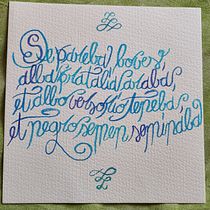 Se pareba boves,
alba pratalia araba,
et albo versorio teneba,
et negro semen seminaba